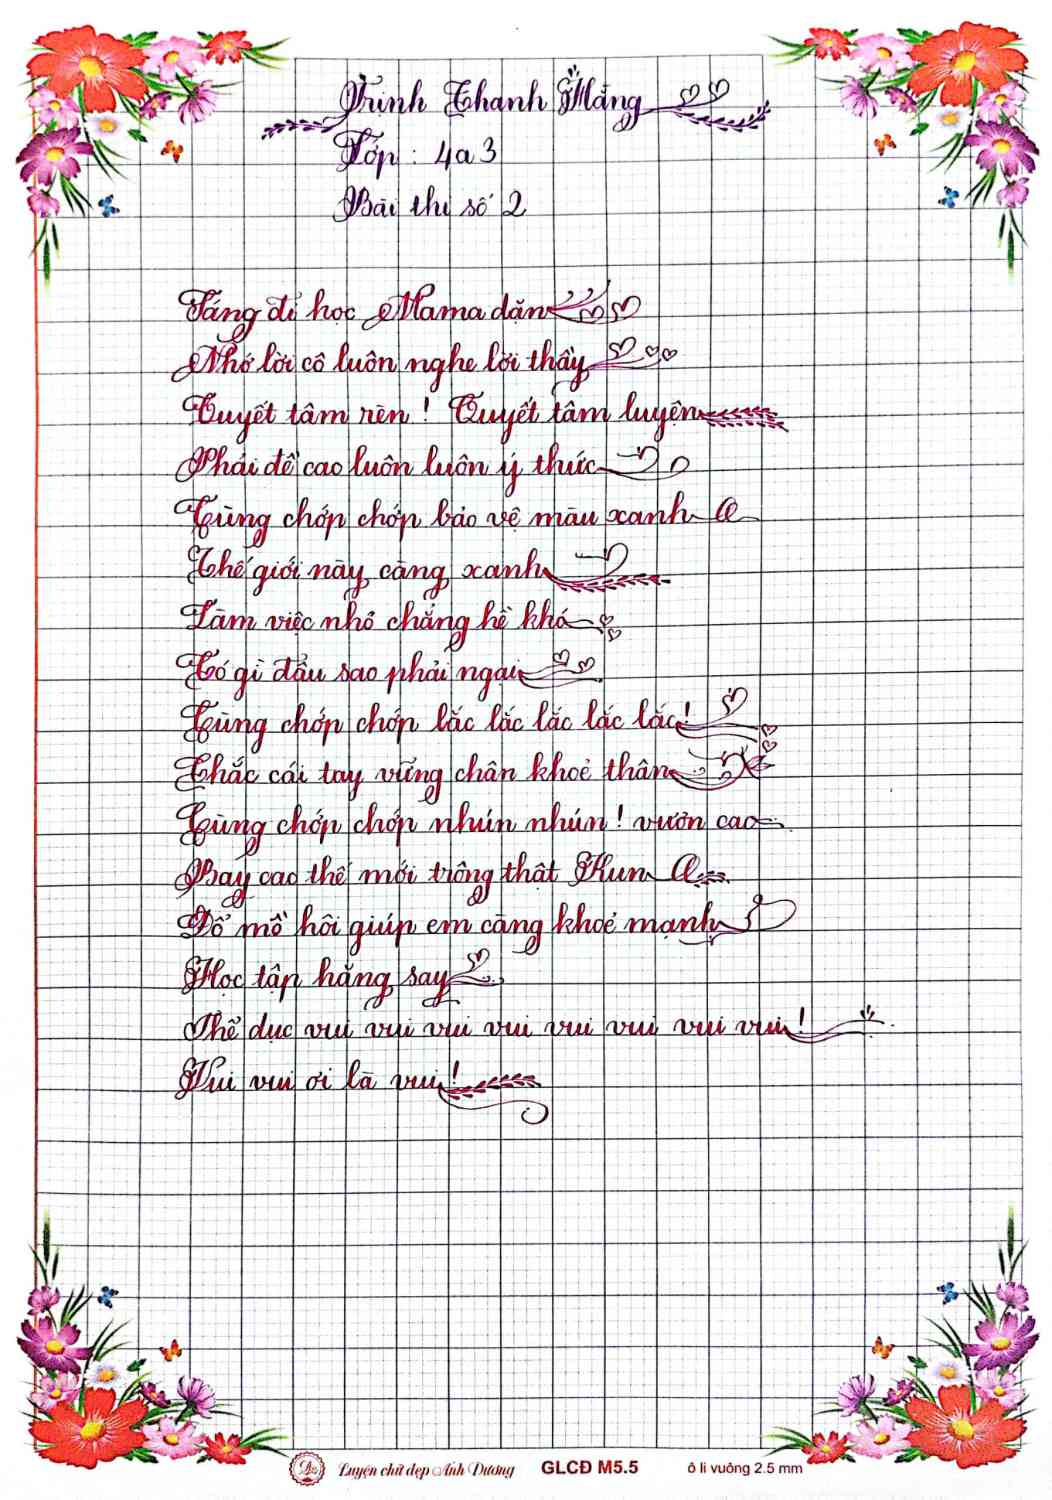 Trịnh Thanh Hằng
Lớp : 4a3
Bài thi số 2
Sáng đi học Mama dặn
Nhớ lời cô luôn nghe lời thầy
Quyết tâm rèn ! Quyết tâm luyện
Phải đề cao luôn luôn ý thức
Cùng chớp chớp bảo vệ màu xanh
Thế giới này càng xanh
Làm việc nhỏ chẳng hề khó
Có gì đâu sao phải ngại
Cùng chớp chớp lắc lắc lắc lắc lắc!
Chắc cái tay vững chân khoẻ thân
Cùng chớp chớp nhún nhún ! vươn cao
Bay cao thế mới trông thật Hun
Đổ mồ hôi giúp em càng khoẻ mạnh
Học tập hăng say
Thể dục vui vui vui vui vui vui vui vui !
Vui vui ơi là vui !
Luyện chữ đẹp Ánh Dương GLCĐ M5.5 ô li vuông 2.5 mm